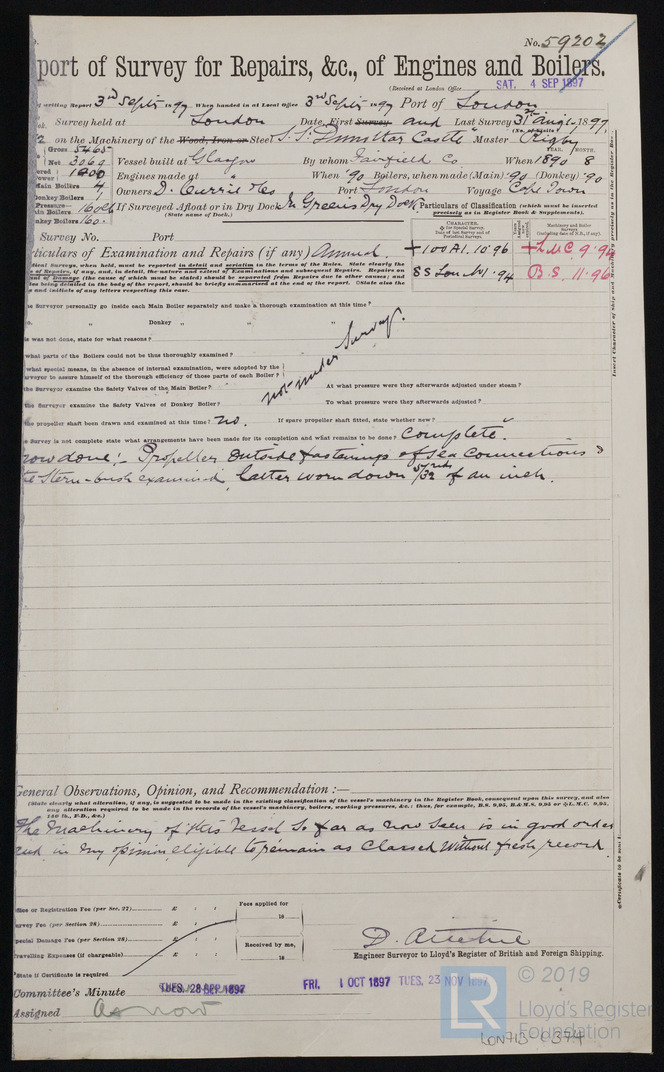 No. 59202
port of Survey for Repairs, &c., of Engines and Boilers.
(Received at London Office SAT. 4 SEP 1897
of writing Report 3rd Sept 1897 When handed in at Local Office 3rd Sept 1897 Port of London
Survey held at London Date, First Survey and Last Survey 31st Aug, 1897
(No. of Visits)
on the Machinery of the Wood, Iron or Steel S.S. "Dunottar Castle" Master Rigby
Gross 5465
Net 3069 Vessel built at Glasgow By whom Fairfield Co. When 1890 8
YEAR. MONTH.
Engines made at " When '90 Boilers, when made (Main) '90 (Donkey) '90
Main Boilers 4 Owners D. Currie & Co Port London Voyage Cape Town
Donkey Boilers 1
Pressure—
ain Boilers 160 lb If Surveyed Afloat or in Dry Dock In Greens Dry Dock
(State name of Dock.)
nkey Boilers 160
Particulars of Classification (which must be inserted precisely as in Register Book & Supplements).
CHARACTER.
Machinery and Boiler Surveys (including date of N.B., if any).
+100A1. 10.96 +LMC 9.96
SS Lon No1. 94 B.S. 11.96
Survey No. Port
rticulars of Examination and Repairs (if any) Annual.
he Surveyor personally go inside each Main Boiler separately and make a thorough examination at this time?
" Donkey " " "
is was not done, state for what reasons?
what parts of the Boilers could not be thus thoroughly examined?
what special means, in the absence of internal examination, were adopted by the
rveyor to assure himself of the thorough efficiency of those parts of each Boiler?
not under Survey.
the Surveyor examine the Safety Valves of the Main Boiler? At what pressure were they afterwards adjusted under steam?
the Surveyor examine the Safety Valves of Donkey Boiler? To what pressure were they afterwards adjusted?
he propeller shaft been drawn and examined at this time? no. If spare propeller shaft fitted, state whether new?
e Survey is not complete state what arrangements have been made for its completion and what remains to be done? Complete".
now done:- Propeller outside fastenings of Sea Connections &
te Stern-bush examined, latter worn down 5/32nds of an inch.
General Observations, Opinion, and Recommendation :—
(State clearly what alteration, if any, is suggested to be made in the existing classification of the vessel's machinery in the Register Book, consequent upon this survey, and also
any alteration required to be made in the records of the vessel's machinery, boilers, working pressures, &c.: thus, for example, B.S. 9,95, B.&M.S. 9,95 or L.M.C. 9,95,
160 lb., F.D., &c.)
The Machinery of this Vessel so far as now seen is in good order
and in my opinion, eligible to remain as Classed without fresh record.
ffice or Registration Fee (per Sec. 27) £ Fees applied for
urvey Fee (per Section 28) £ 18
pecial Damage Fee (per Section 28) £ Received by me,
ravelling Expenses (if chargeable) £ 18
D. Ritchie
Engineer Surveyor to Lloyd's Register of British and Foreign Shipping.
State if Certificate is required
Committee's Minute FRI. 1 OCT 1897 TUES. 23 NOV 1897
Assigned As now
© 2019
LR
Lloyd's Register
Foundation
LON713-0374